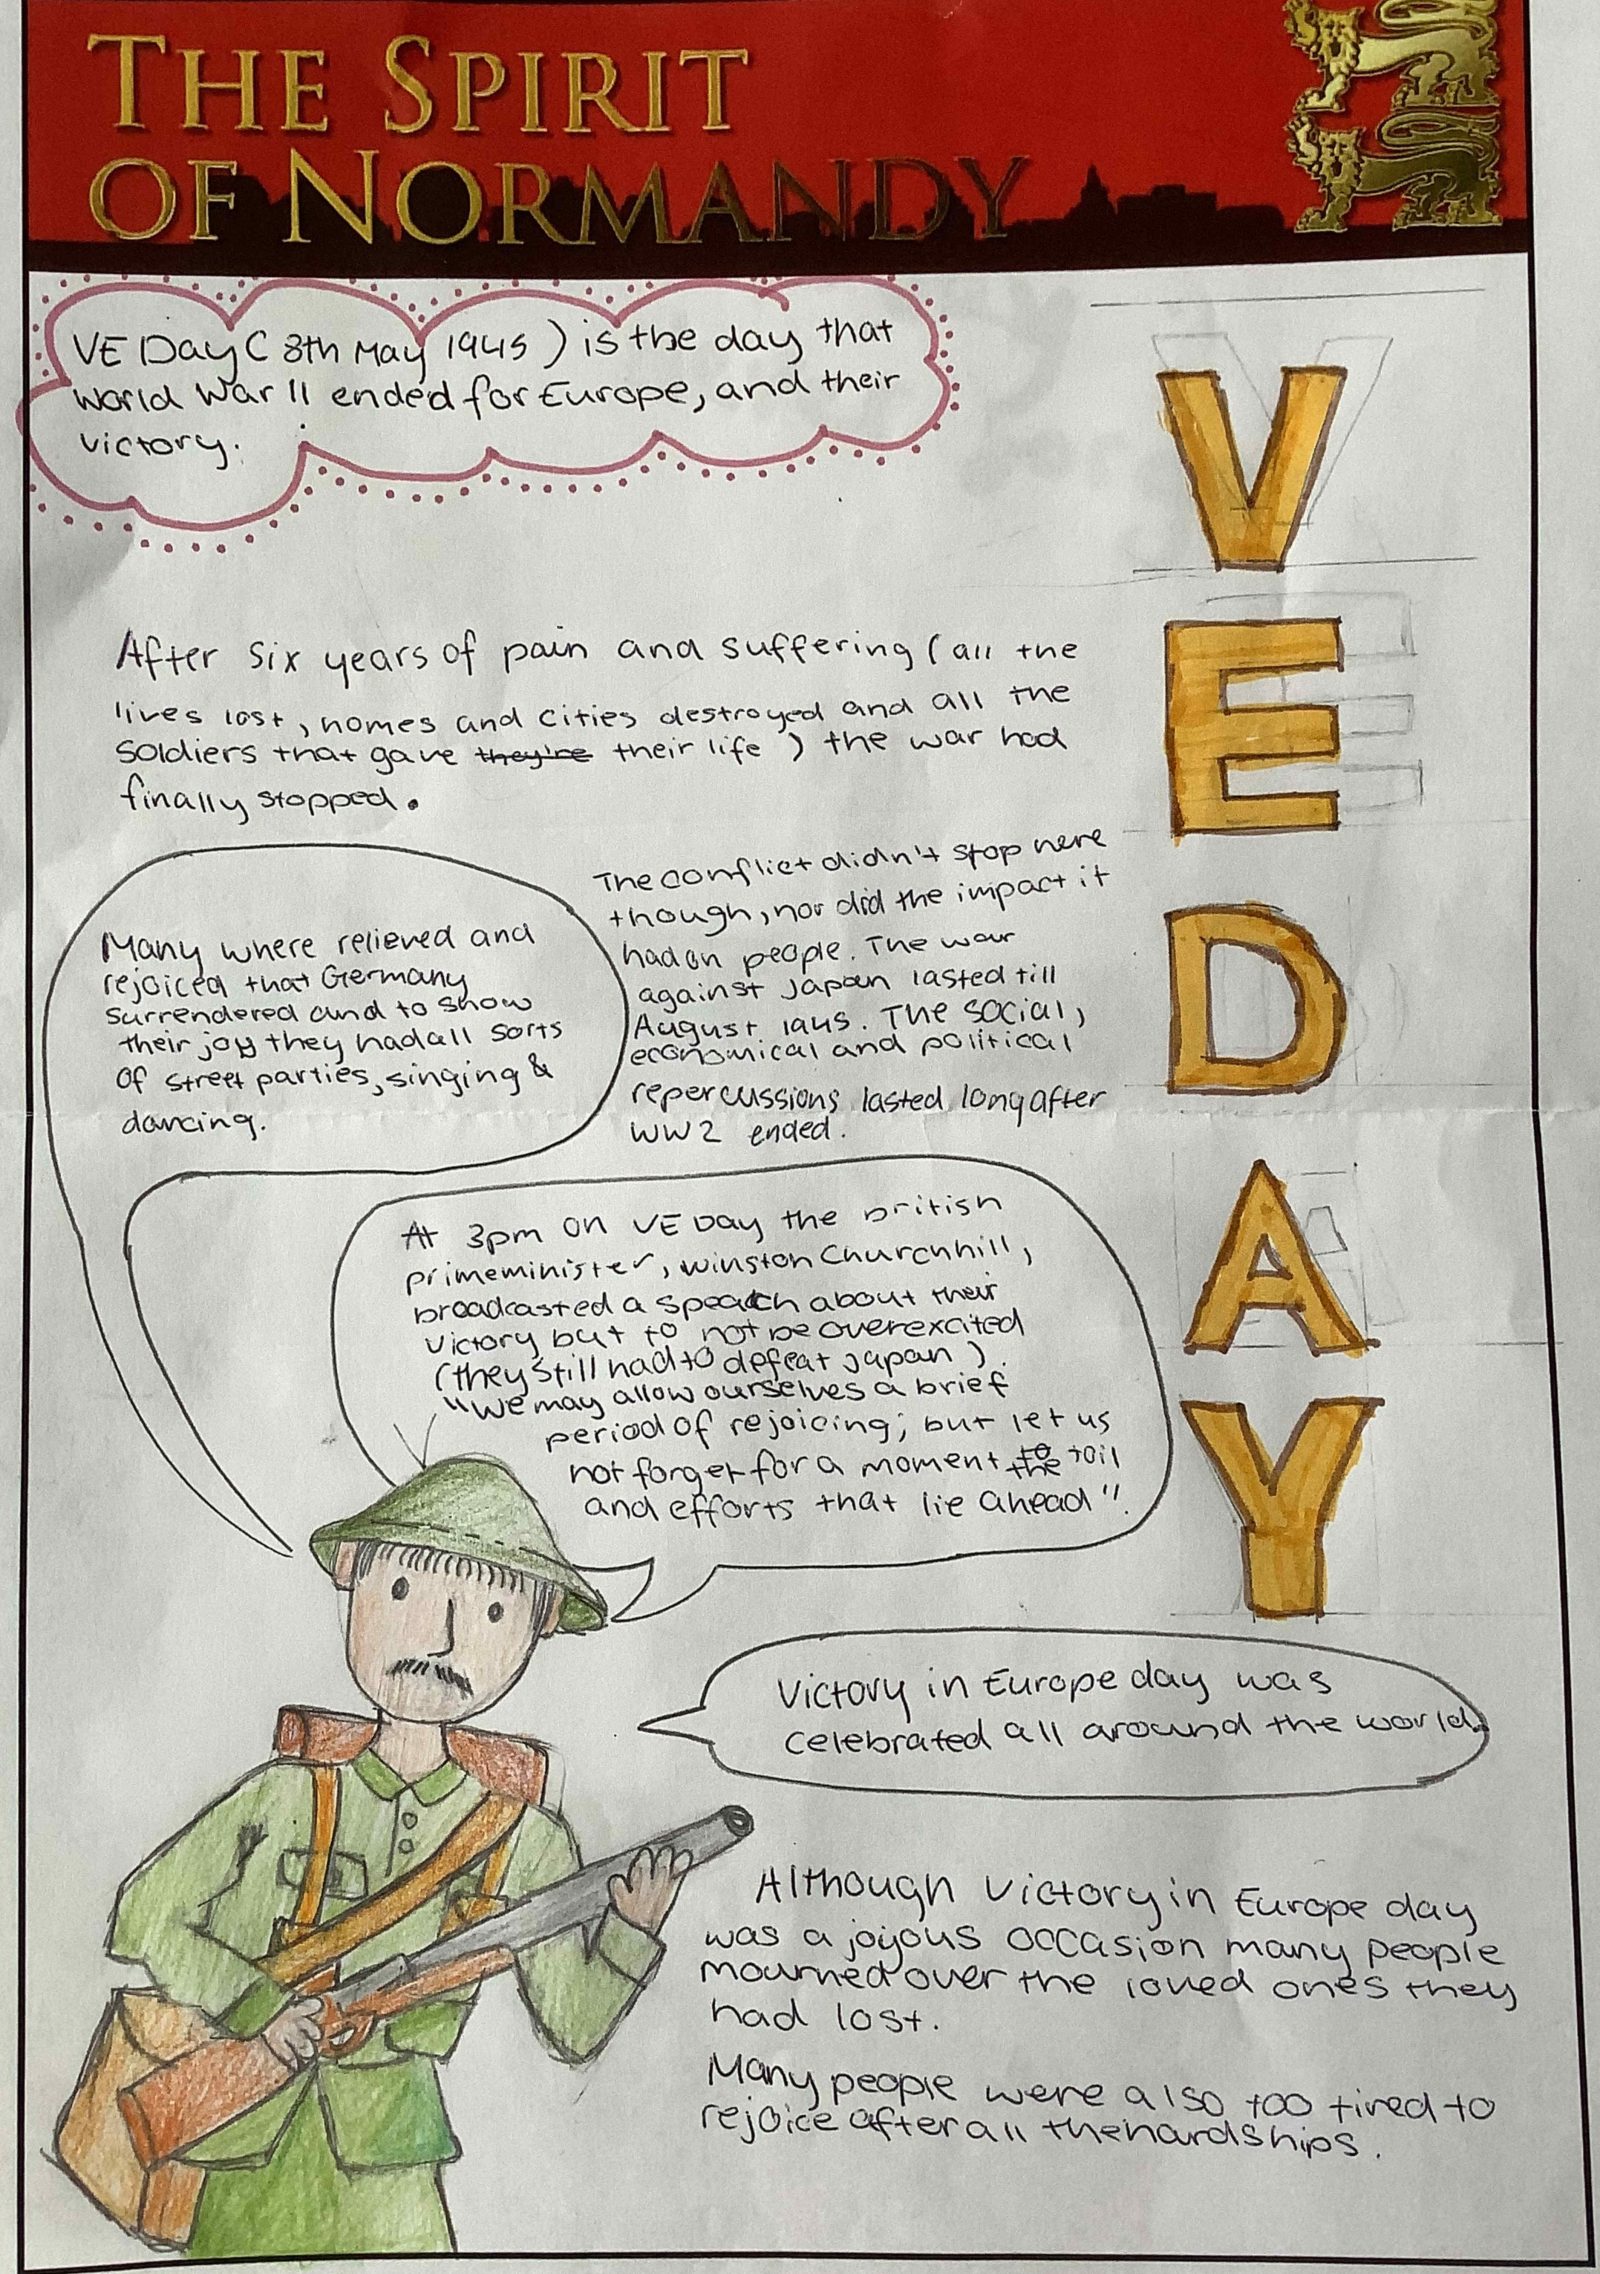 THE SPIRIT
OF NORMANDY
VE Day ( 8th May 1945 ) is the day that
World War II ended for Europe, and their
victory.
After six years of pain and suffering ( all the
lives lost, homes and cities destroyed and all the
soldiers that gave they're their life ) the war had
finally stopped.
Many where relieved and
rejoiced that Germany
surrendered and to show
their joy they had all sorts
of street parties, singing &
dancing.
The conflict didn't stop here
though, nor did the impact it
had on people. The war
against Japan lasted till
August 1945. The social,
economical and political
repercussions lasted long after
WW2 ended.
At 3pm on VE Day the british
primeminister, winston Churchhill,
broadcasted a speach about their
victory but to not be overexcited
(they still had to defeat Japan ).
"We may allow ourselves a brief
period of rejoicing; but let us
not forget for a moment to the toil
and efforts that lie ahead".
Victory in Europe day was
celebrated all around the world.
Although Victory in Europe day
was a joyous occasion many people
mourned over the loved ones they
had lost.
Many people were also too tired to
rejoice after all the hardships.
V
E
D
A
Y